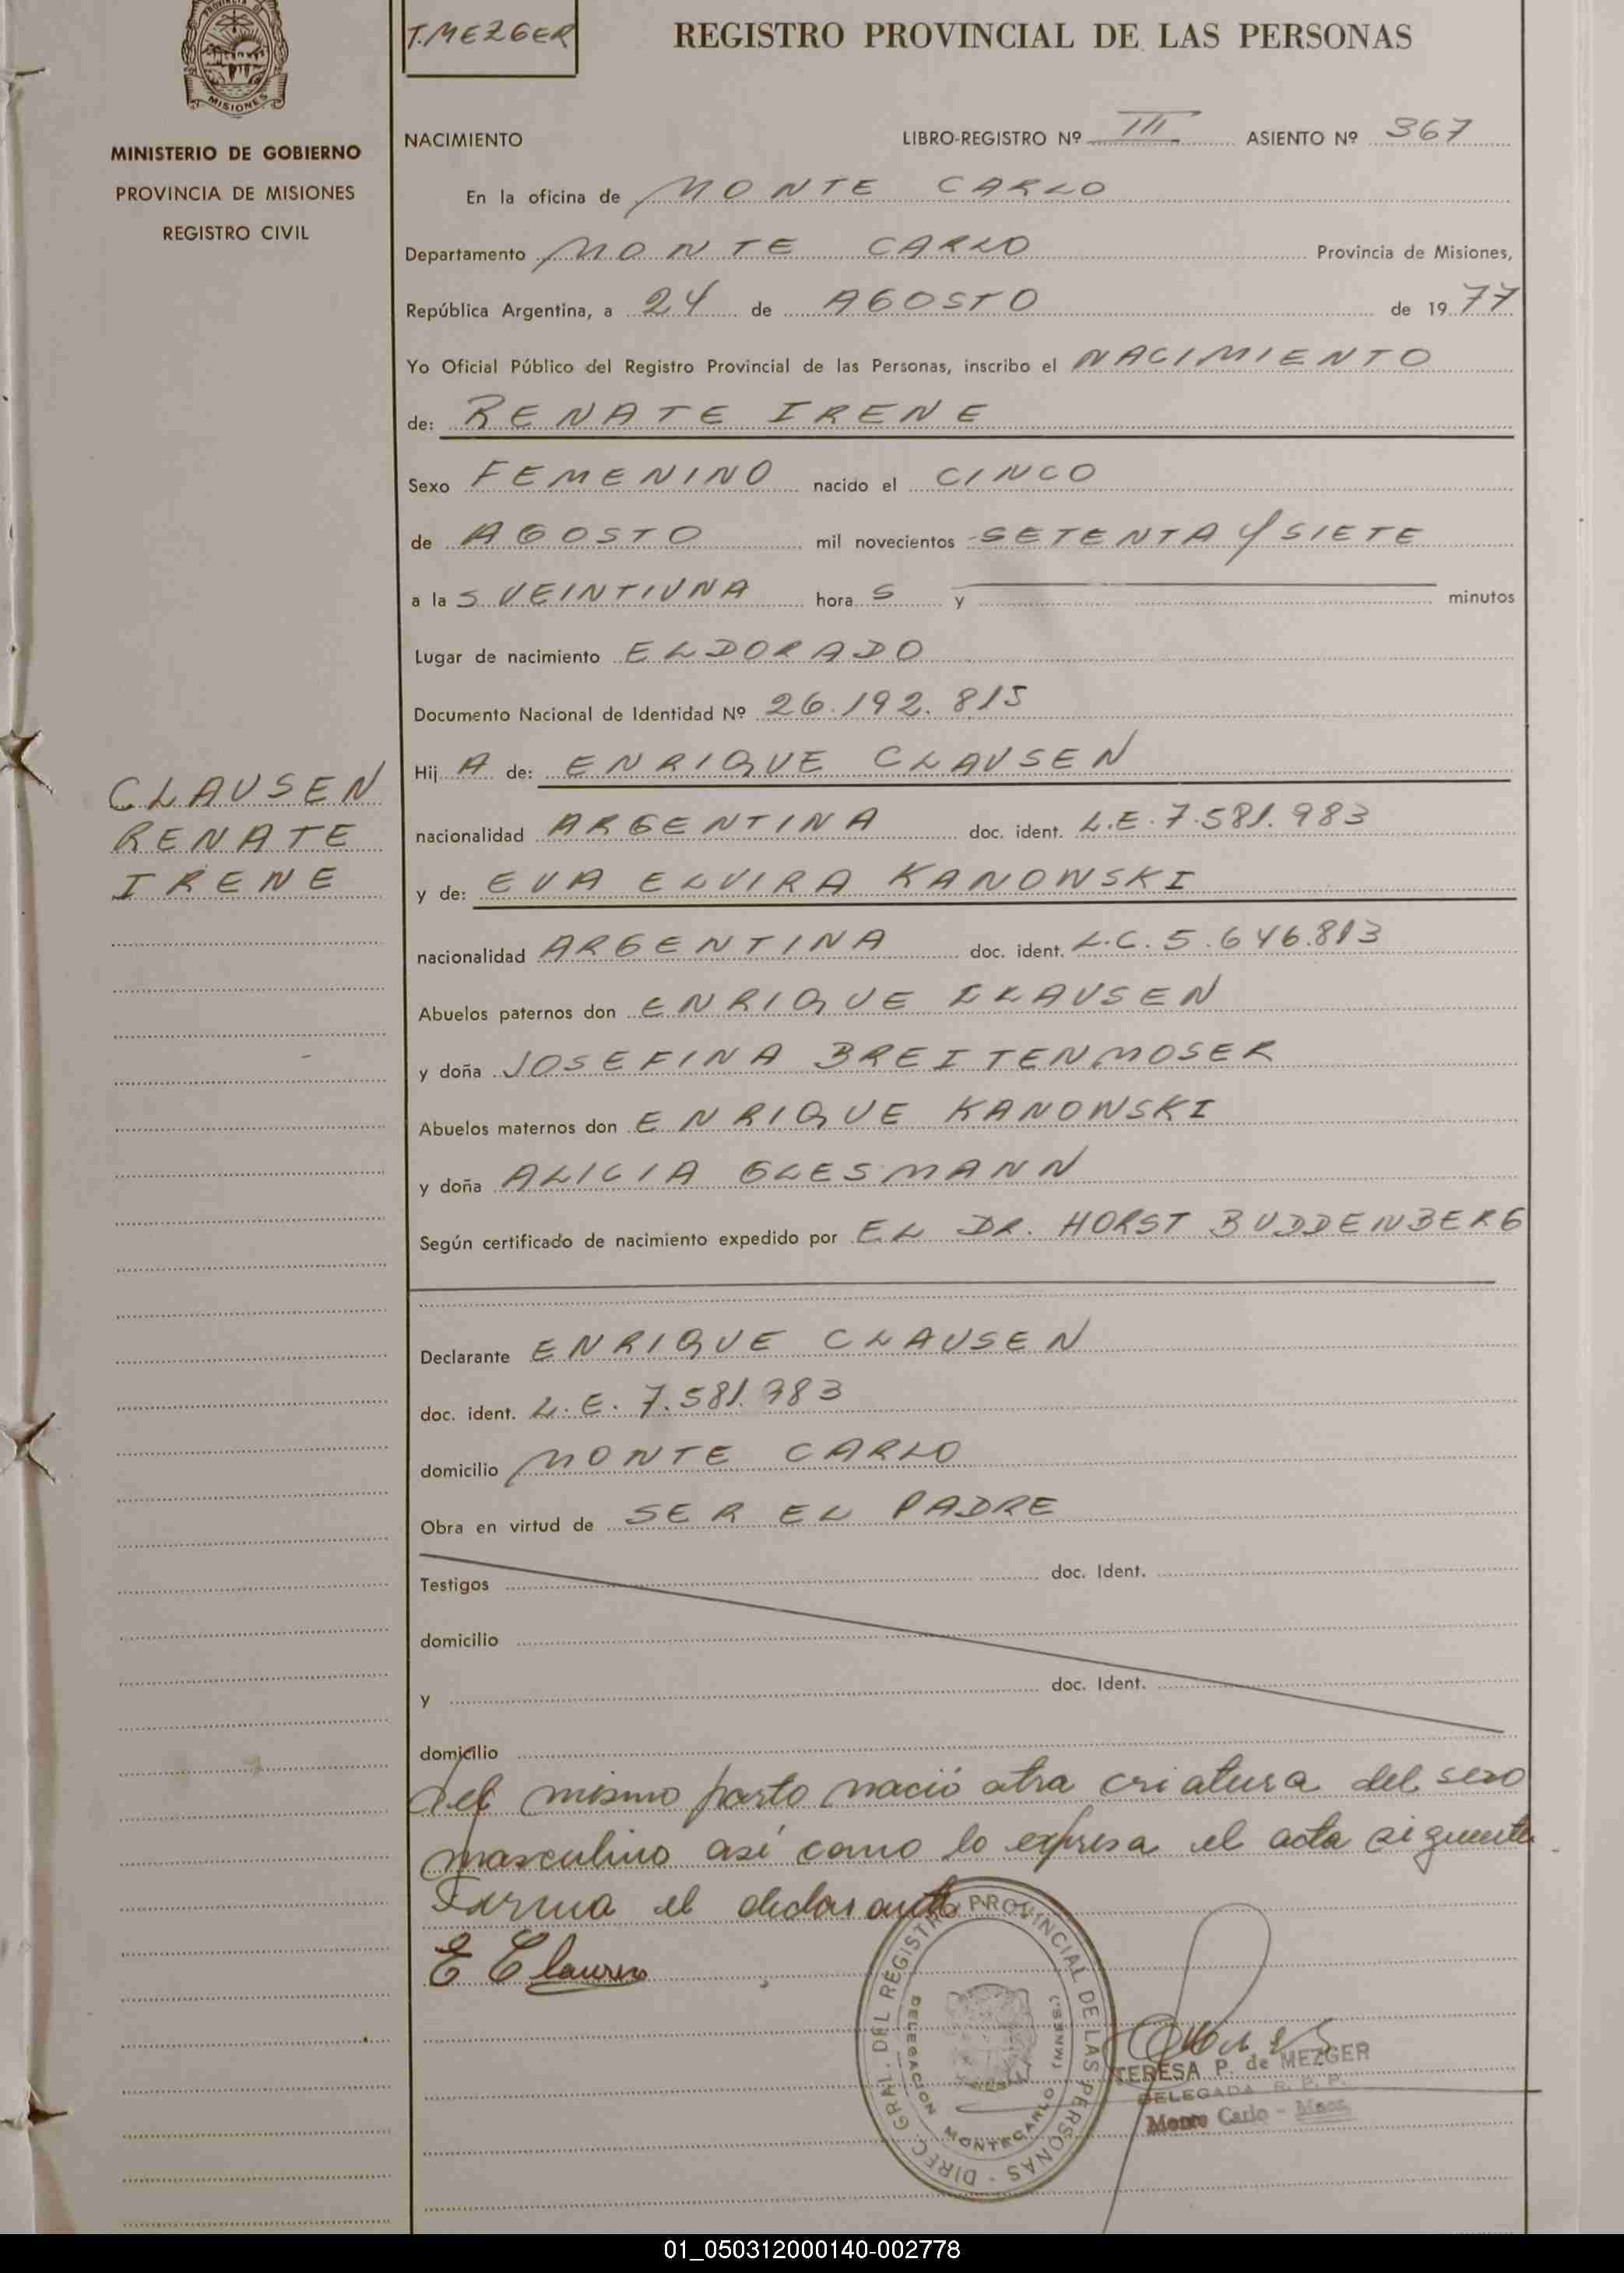 PROVINCIA DE
MISIONES
T. MEZGER
REGISTRO PROVINCIAL DE LAS PERSONAS
MINISTERIO DE GOBIERNO
PROVINCIA DE MISIONES
REGISTRO CIVIL
NACIMIENTO LIBRO-REGISTRO Nº III ASIENTO Nº 367
En la oficina de MONTE CARLO
Departamento MONTE CARLO Provincia de Misiones,
República Argentina, a 24 de AGOSTO de 1977
Yo Oficial Público del Registro Provincial de las Personas, inscribo el NACIMIENTO
de: RENATE IRENE
Sexo FEMENINO nacido el CINCO
de AGOSTO mil novecientos SETENTA Y SIETE
a las VEINTIUNA horas y minutos
Lugar de nacimiento ELDORADO
Documento Nacional de Identidad Nº 26.192.815
CLAUSEN
RENATE
IRENE
Hij A de: ENRIQUE CLAUSEN
nacionalidad ARGENTINA doc. ident. L.E. 7.581.983
y de: EVA ELVIRA KANOWSKI
nacionalidad ARGENTINA doc. ident. L.C. 5.646.813
Abuelos paternos don ENRIQUE KLAUSEN
y doña JOSEFINA BREITENMOSER
Abuelos maternos don ENRIQUE KANOWSKI
y doña ALICIA GLESMANN
Según certificado de nacimiento expedido por EL DR. HORST BUDDENBERG
Declarante ENRIQUE CLAUSEN
doc. ident. L.E. 7.581.983
domicilio MONTE CARLO
Obra en virtud de SER EL PADRE
Testigos doc. Ident.
domicilio
y doc. Ident.
domicilio
Del mismo parto nació otra criatura del sexo
masculino así como lo expresa el acta siguiente
Firma el declarante
E Clausen
DIREC. GRAL. DEL REGISTRO PROVINCIAL DE LAS PERSONAS
DELEGACION MONTECARLO (MNES.)
TERESA P. de MEZGER
DELEGADA R. P. P.
Monte Carlo - Mnes.
01_050312000140-002778